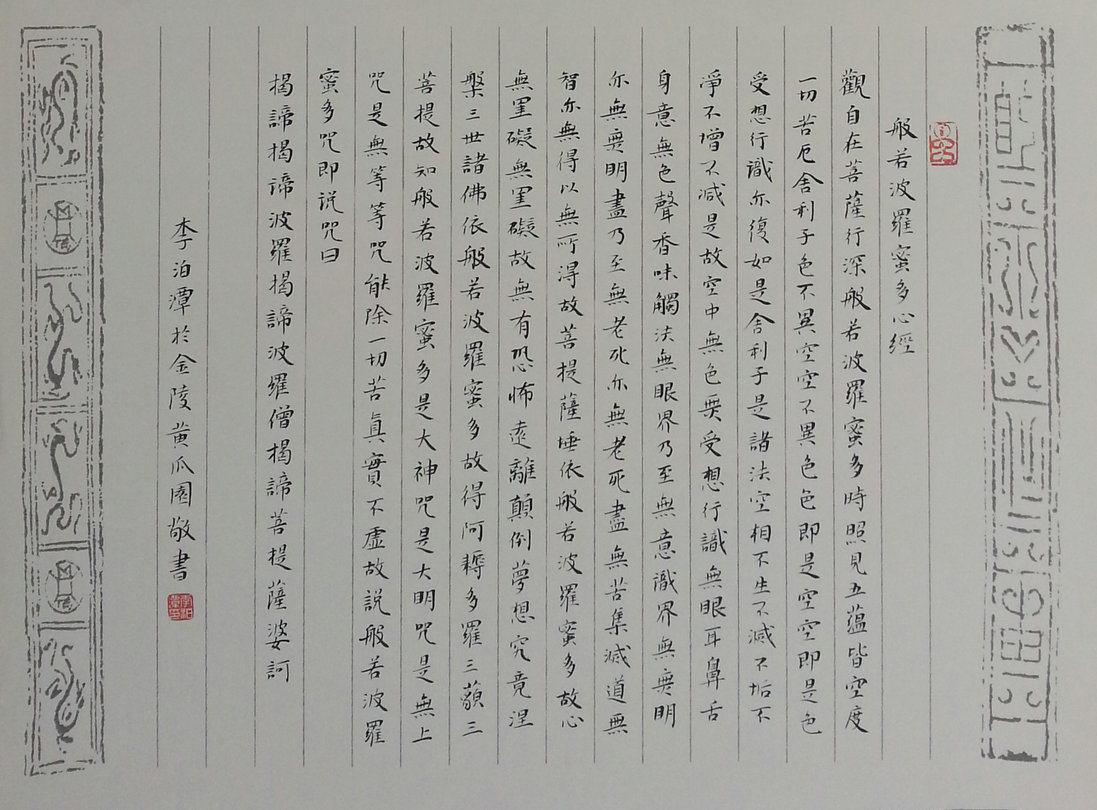 般若波羅蜜多心經
觀自在菩薩行深般若波羅蜜多時照見五蘊皆空度
一切苦厄舍利子色不異空空不異色色即是空空即是色
受想行識亦復如是舍利子是諸法空相不生不滅不垢不
淨不增不減是故空中無色無受想行識無眼耳鼻舌
身意無色聲香味觸法無眼界乃至無意識界無無明
亦無無明盡乃至無老死亦無老死盡無苦集滅道無
智亦無得以無所得故菩提薩埵依般若波羅蜜多故心
無罣礙無罣礙故無有恐怖遠離顛倒夢想究竟涅
槃三世諸佛依般若波羅蜜多故得阿耨多羅三藐三
菩提故知般若波羅蜜多是大神咒是大明咒是無上
咒是無等等咒能除一切苦真實不虛故説般若波羅
蜜多咒即説咒曰
揭諦揭諦波羅揭諦波羅僧揭諦菩提薩婆訶
李泊潭於金陵黄瓜園敬書